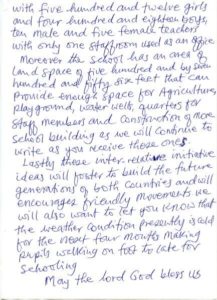 with five hundred and twelve girls
and four hundred and eighteen boys,
ten male and five female teachers
with only one staffroom used as an office
Moreover the school has an area of
land space of five hundred and by
hundred and fifty six feet that can
provide enough space for Agriculture,
playground, water wells, quarters for
staff members and construction of more
school building as we will continue to
write as you receive these ones
Lastly these inter-relative initiative
ideas will foster to build the future
generations of both Countries and will
encourages friendly movements we
will also want to let you know that
the weather condition presently is cold
for the next four months making
pupils walking on foot to late for
schooling
May the lord God bless us